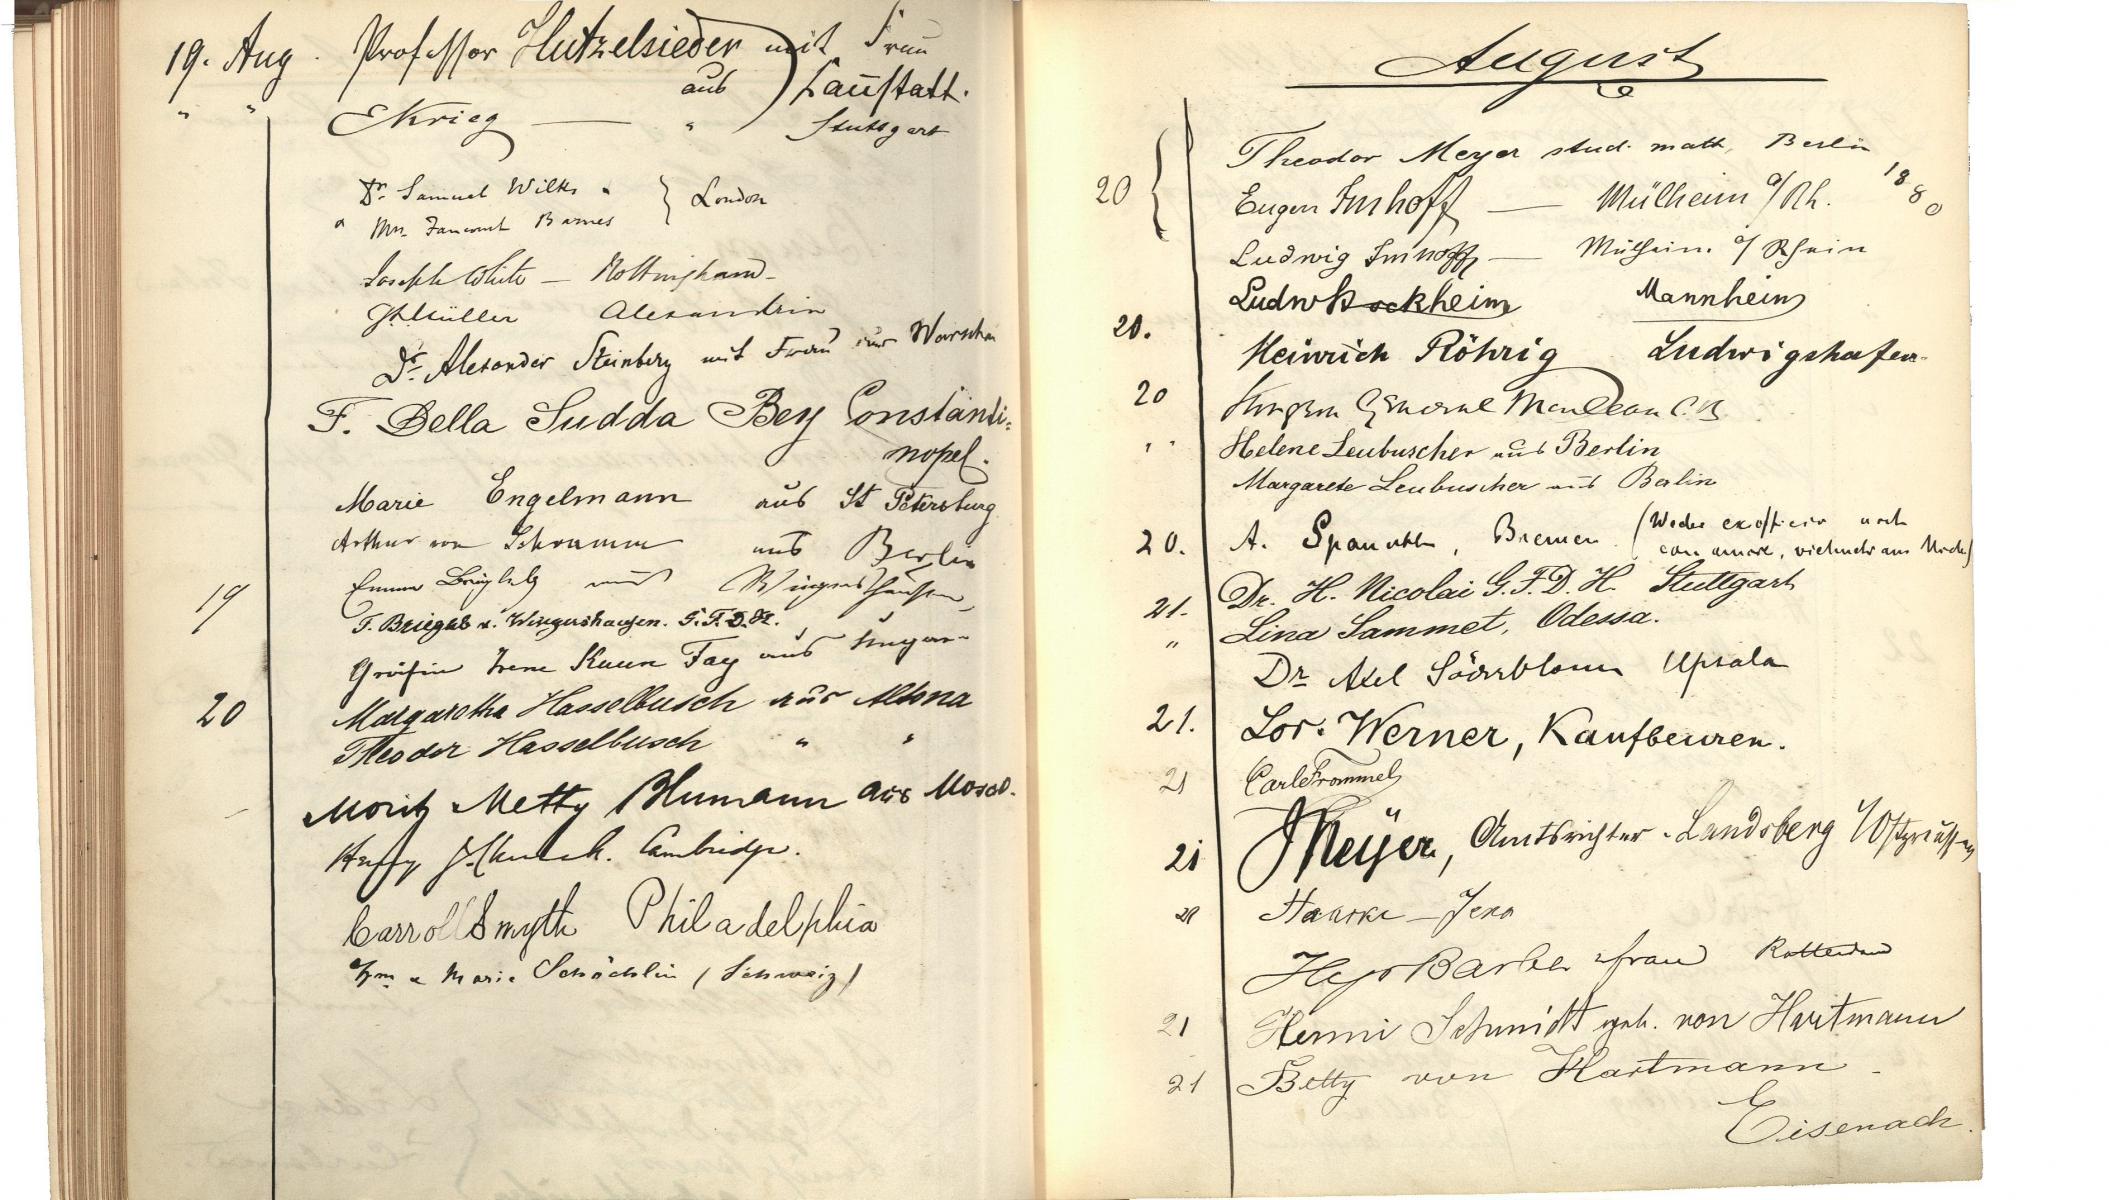 19. Aug. Professor Hutzelsieder mit Frau
aus Caustatt.
" " EKrieg — " Stuttgart
Dr. Samuel Wilks
Mrs. Fancourt Barnes } London
Joseph White — Nottingham
Müller Alexandrin
Dr. Alexander Steinberg mit Frau aus Warschau
F. Della Sudda Bey Constanti=
nopel.
Marie Engelmann aus St Petersburg
Arthur von Schramm aus Berlin
19 Emma Brieglieb aus Wingershausen
F. Briegleb v. Wingershausen. G.F.D.H.
Gräfin Irene Kuun Fay aus Ungarn
20 Margaretha Hasselbusch aus Altona
Theodor Hasselbusch " "
Moritz Metty Blumann aus Mosco.
Church. Cambridge.
Carroll Smyth Philadelphia
Marie Schöchlin (Schweiz)
August
20 { Theodor Meyer stud. math. Berlin
Eugen Imhoff — Mülheim a/Rh. 1880
Ludwig Imhoff — Mülheim a/Rhein
Ludw Hockheim Mannheim
20. Heinrich Röhrig Ludwigshafen
20 Surgeon General MacLean C.B.
" " Helene Leubuscher aus Berlin
Margarete Leubuscher aus Berlin
20. A. Spanuth, Bremen. (Weder ex officio noch
con amore, vielmehr aus
21. Dr. H. Nicolai G.F.D.H. Stuttgart
" Lina Sammet, Odessa.
Dr Axel Söderblom Upsala
21. Lor. Werner, Kaufbeuren.
21 Carl Frommel
21 Meÿer, Amtsrichter - Landsberg i/Ostpreussen
21 Jena
Frau Rotterdam
21 Henni Schmidt geb. von Hartmann
21 Betty von Hartmann
Eisenach.